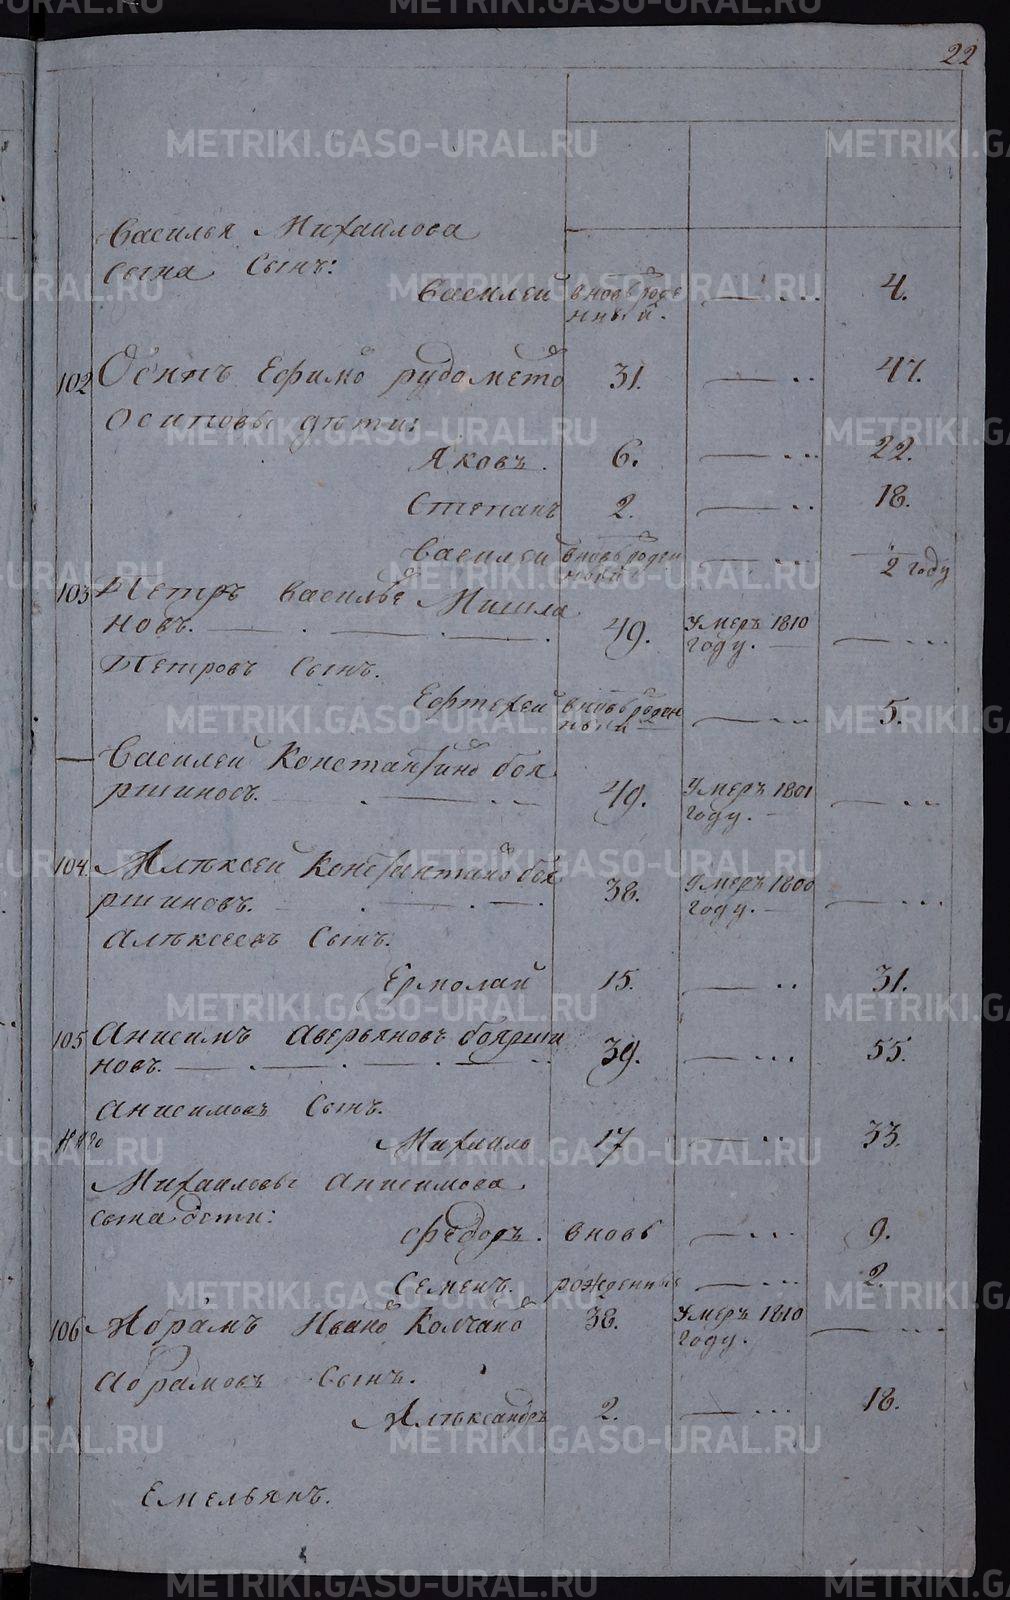 22
Василья Михаилова
сына сынъ:
Василеи вновь рожде 4.
нныи.
102 Осипъ Ефимо рудомето 31. 47.
Осиповы дѣти:
Яковъ. 6. 22.
Степанъ 2. 18.
Василеи вновь рожден 2 году
ныи
103 Петръ Василье Мишла
новъ. 49. Умеръ 1810
году.
Петровъ сынъ.
вновь рожден 5.
ныи
Василеи Константино боя
ршиновъ. 49. Умеръ 1801
году.
104. Алѣксеи Константино боя
ршиновъ. 38. Умеръ 1800
году.
Алѣксеевъ сынъ.
Ермолаи 15. 31.
105 Анисимъ Аверьяновъ боярши
новъ. 39. 55.
Анисимовъ сынъ.
Михаило 17 33.
Михаиловы Анисимова
сына дети:
Федоръ. вновь 9.
Семенъ. рожденные 2.
106 Абрамъ Ивано Колчано 38. Умеръ 1810
году.
Абрамовъ сынъ.
Алѣксандръ 2. 18.
Емельянъ.
METRIKI.GASO-URAL.RU